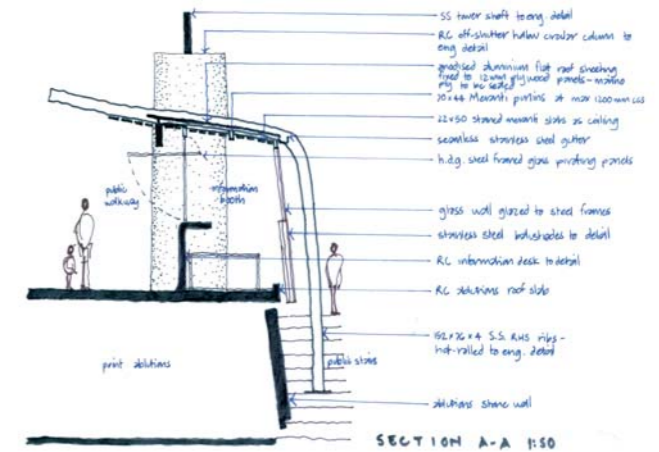 SS tower shaft to eng. detail
RC off-shutter hollow circular column to
eng detail
anodised aluminium flat roof sheeting
fixed to 12mm plywood panels - marine
ply to be sealed
70x44 Meranti purlins at max 1200mm ccs
22x50 stained meranti slats as ceiling
seamless stainless steel gutter
h.d.g. steel framed glass pivoting panels
public
walkway
information
booth
glass wall glazed to steel frames
stainless steel balustrades to detail
RC information desk to detail
RC ablutions roof slab
152x76x4 S.S. RHS ribs -
hot-rolled to eng. detail
print ablutions
public stairs
ablutions stone wall
SECTION A-A 1:50